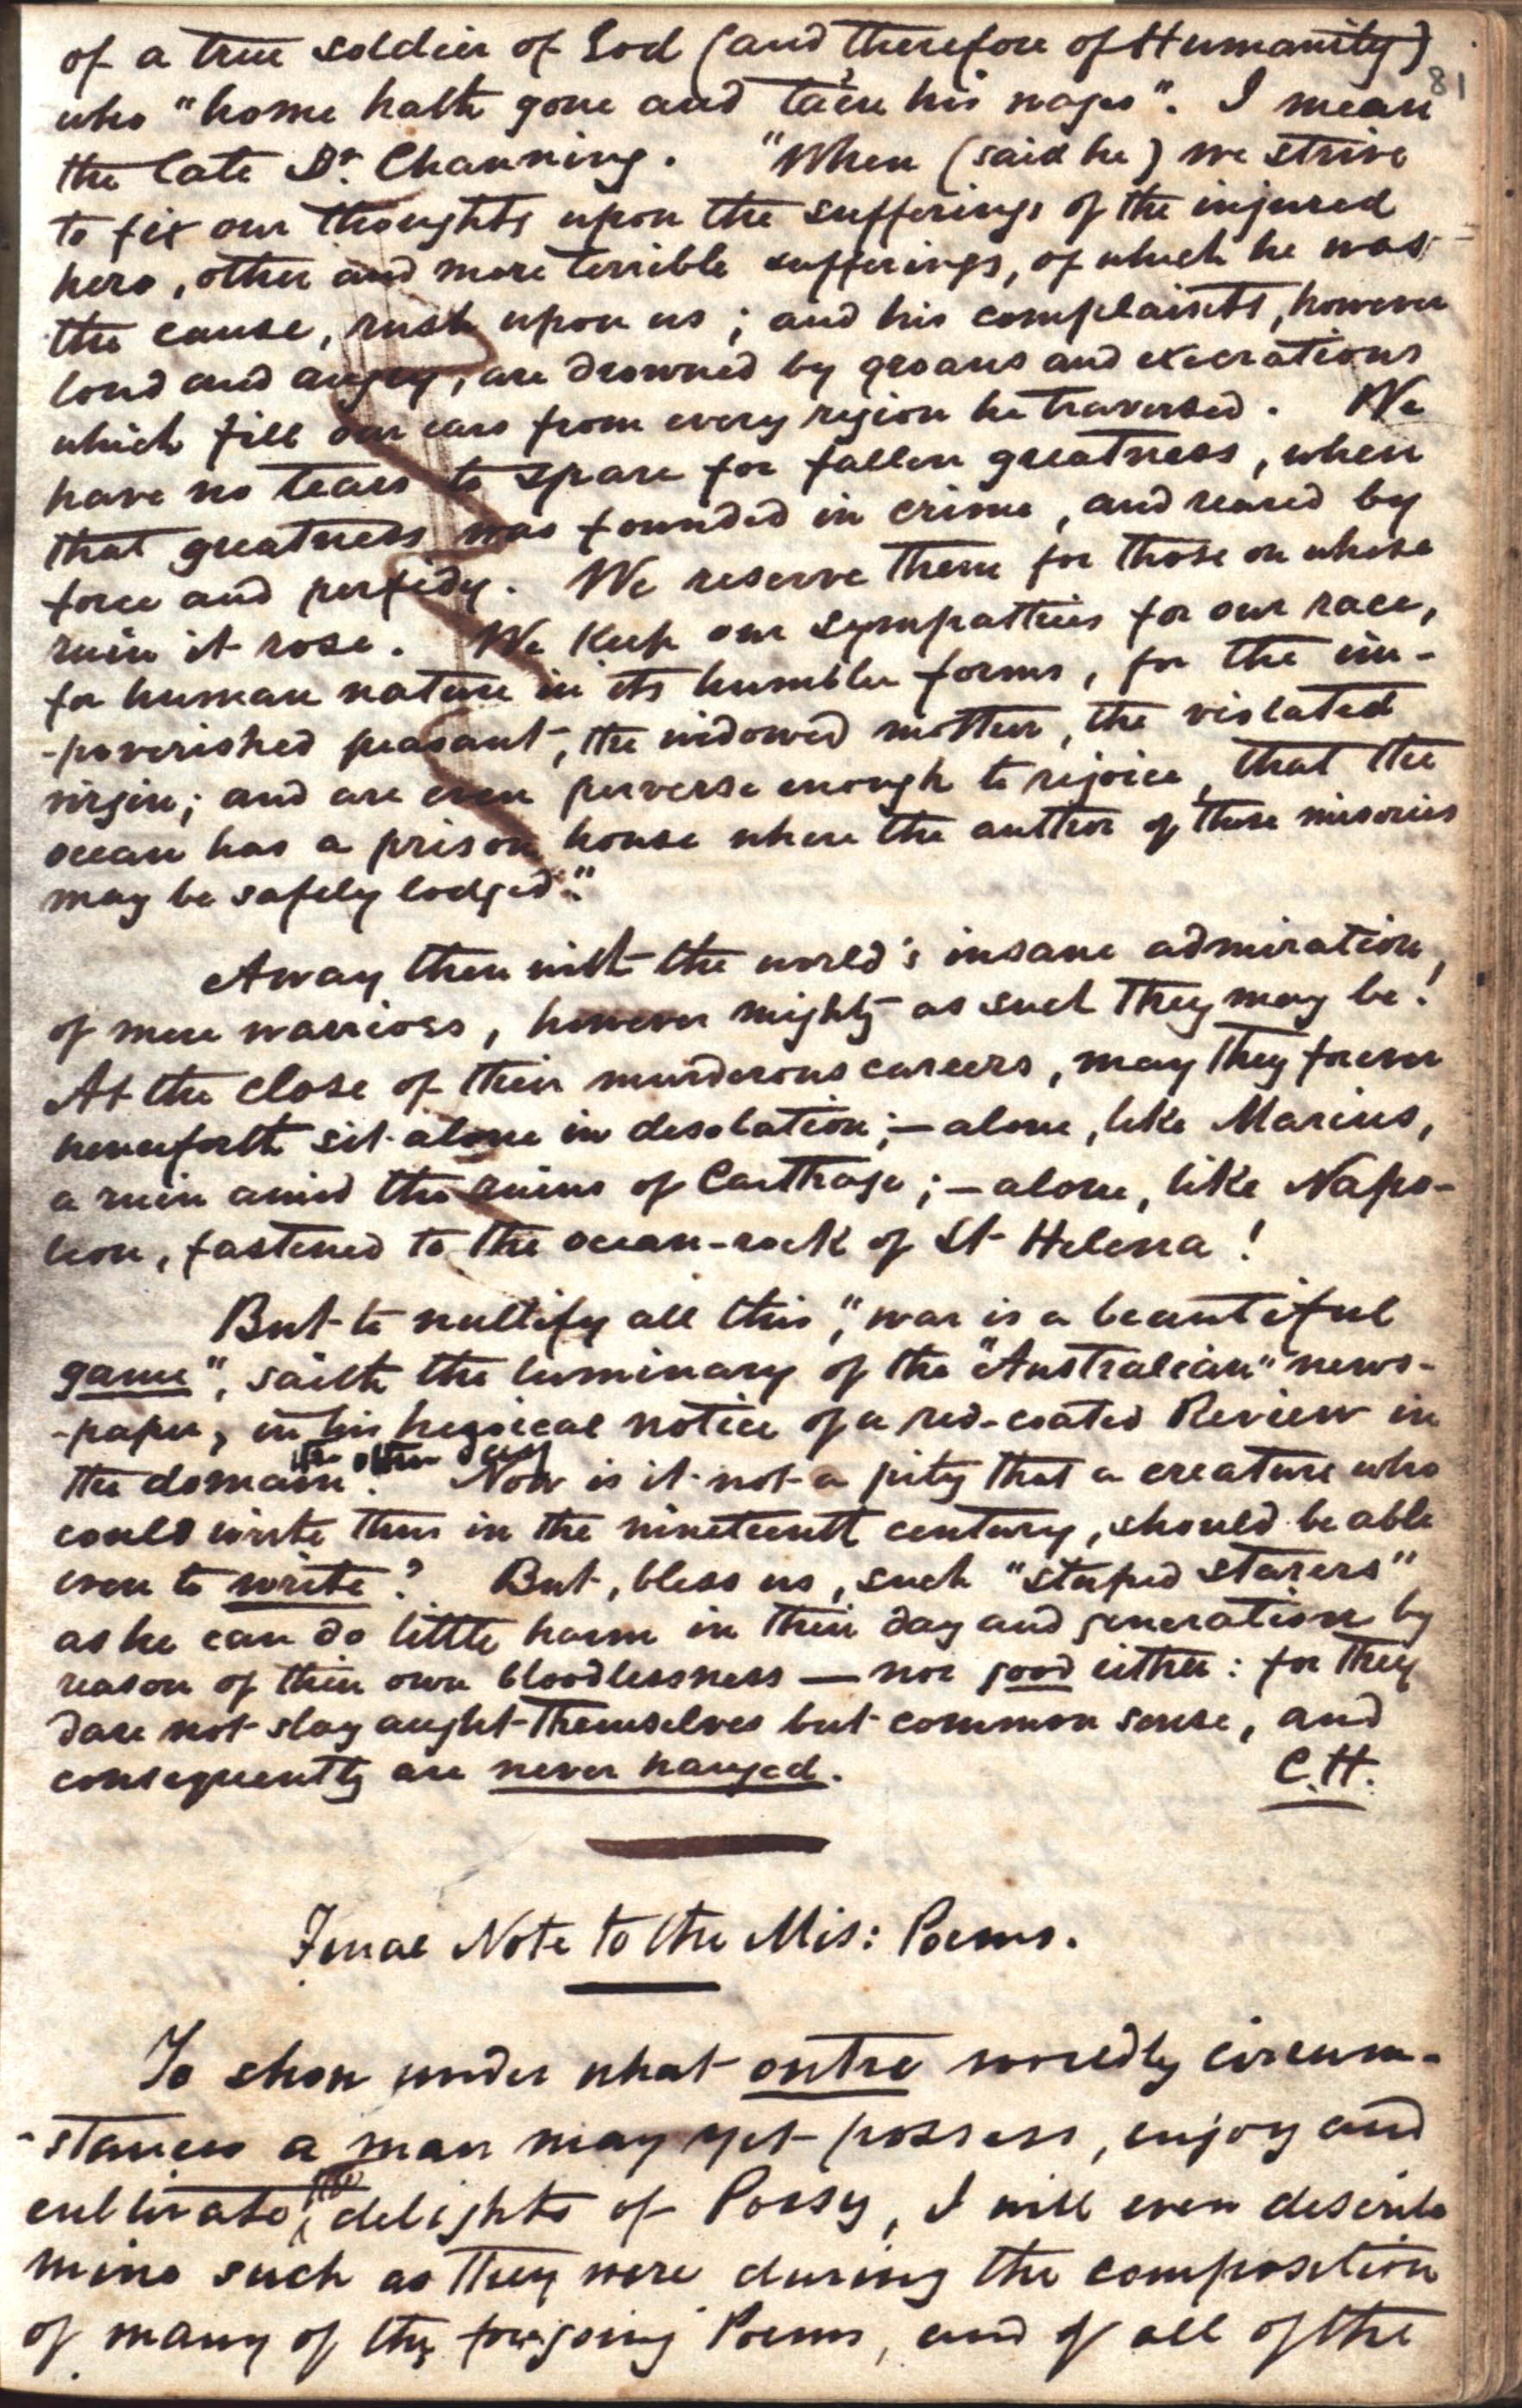 of a true soldier of God (and therefore of Humanity)
81
who "home hath gone and ta'en his wages". I mean
the late Dr. Channing. "When (said he) we strive
to fix our thoughts upon the sufferings of the injured
hero, other and more terrible sufferings, of which he was
the cause, rush upon us; and his complaints, however
loud and angry, are drowned by groans and execrations
which fill our ears from every region he traversed. We
have no tears to spare for fallen greatness, when
that greatness was founded in crime, and reared by
force and perfidy. We reserve them for those on whose
ruin it rose. We keep our sympathies for our race,
for human nature in its humbler forms, for the im-
-poverished peasant, the widowed mother, the violated
virgin; and are even perverse enough to rejoice, that the
ocean has a prison house where the author of those miseries
may be safely lodged."
Away then with the world's insane admiration,
of mere warriors, however mighty as such they may be!
At the close of their murderous careers, may they forever
henceforth sit alone in desolation;—alone, like Marius,
a ruin amid the ruins of Carthage;—alone, like Napo-
leon, fastened to the ocean-rock of St Helena!
But to nullify all this, "war is a beautiful
game", saith the luminary of the "Australian" news-
-paper, in his heroical notice of a red-coated Review in
the domain the other day. Now is it not a pity that a creature who
could write thus in the nineteenth century, should be able
even to write? But, bless us, such "stupid starers"
as he can do little harm in their day and generation by
reason of their own bloodlessness — nor good either: for they
dare not slay aught themselves but common sense, and
consequently are never hanged.
C.H.
Final Note to the Mis: Poems.
To show under what outre worldly circum-
-stances a man may yet possess, enjoy and
cultivate, the delights of Poesy, I will even describe
mine such as they were during the composition
of many of the foregoing Poems, and of all of the